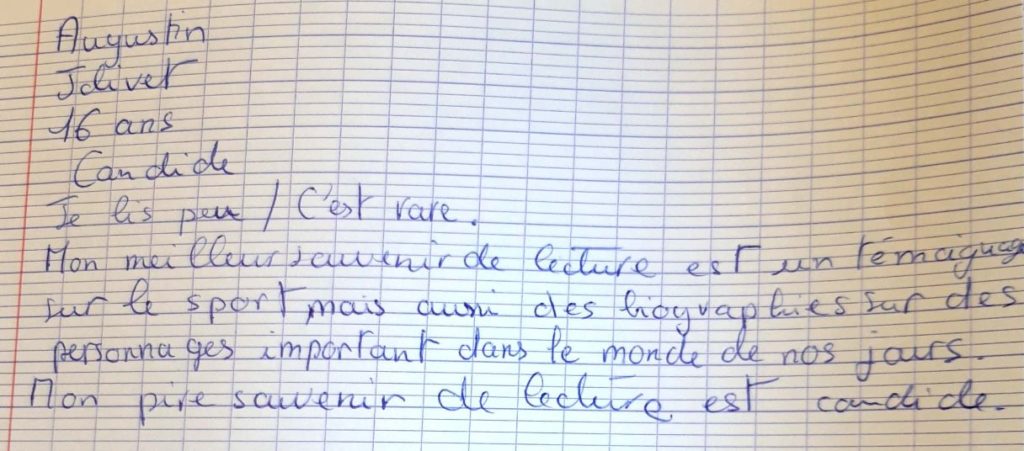 Augustin
Jolivet
16 ans
Candide
Je lis peu / C'est rare.
Mon meilleur souvenir de lecture est un témoignage
sur le sport mais aussi des biographies sur des
personnages important dans le monde de nos jours.
Mon pire souvenir de lecture est candide.